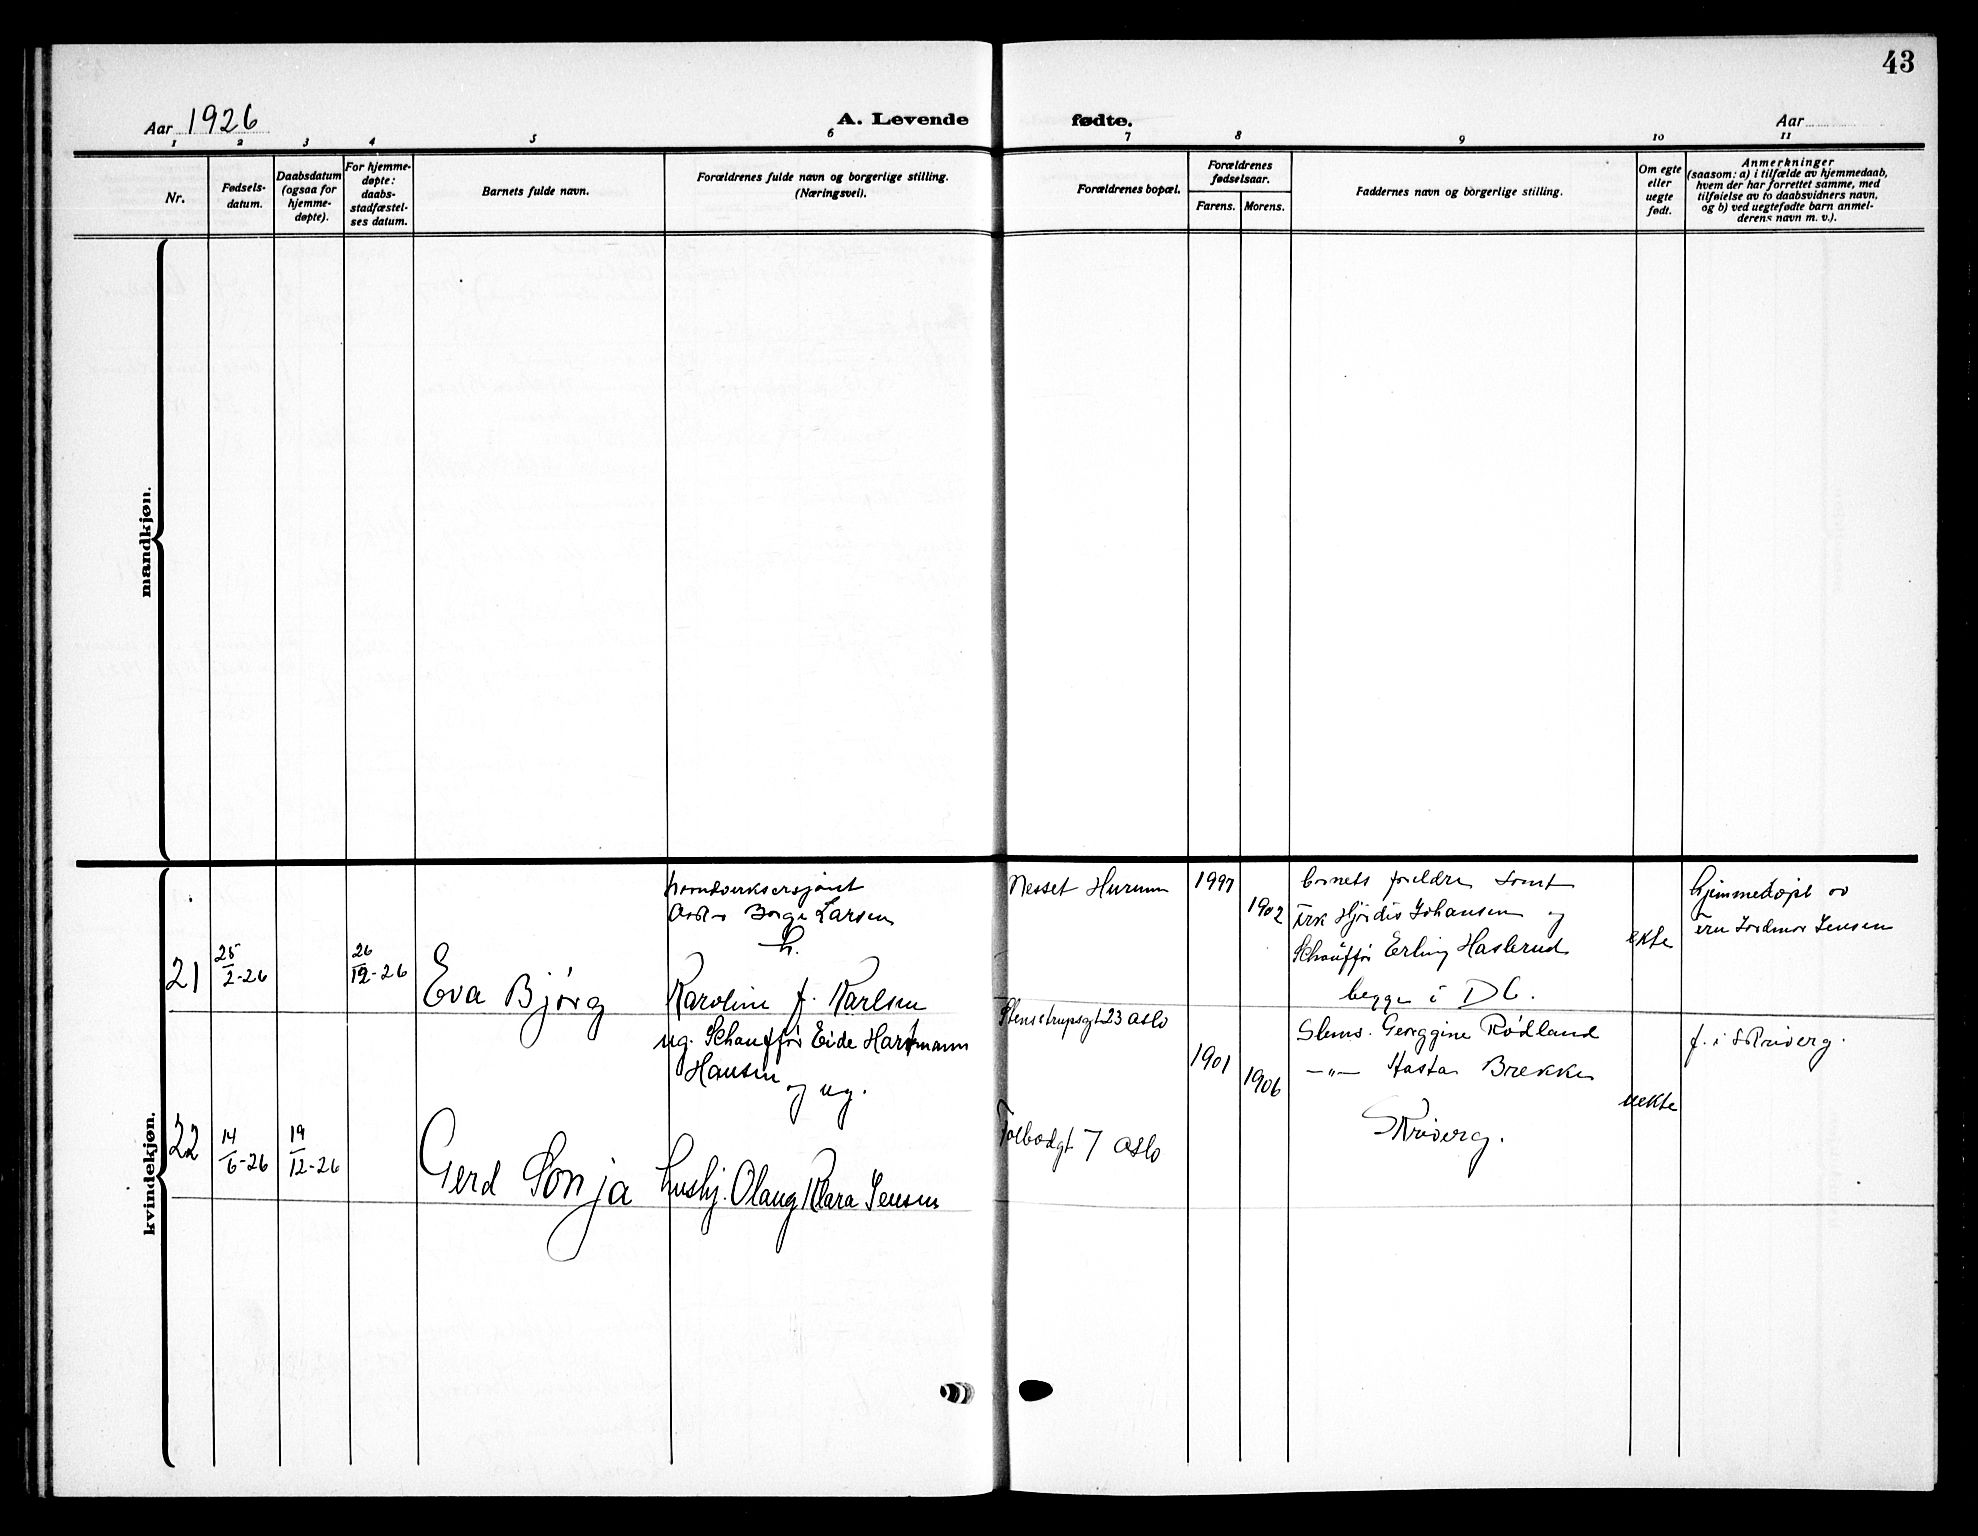 43
Aar 1926
A. Levende fødte.
Aar
1 2 3 4 5 6 7 8 9 10 11
Nr.
Fødsels-
datum.
Daabsdatum
(ogsaa for
hjemme-
døpte).
For hjemme-
døpte:
daabs-
stadfæstel-
ses datum.
Barnets fulde navn.
Forældrenes fulde navn og borgerlige stilling.
(Næringsvei).
Forældrenes bopæl.
Forældrenes
fødselsaar.
Farens. Morens.
Faddernes navn og borgerlige stilling.
Om egte
eller
uegte
født.
Anmerkninger
(saasom: a) i tilfælde av hjemmedaab,
hvem der har forrettet samme, med
tilføielse av to daabsvidners navn,
og b) ved uegtefødte barn anmel-
derens navn m. v.).
mandkjøn.
kvindekjøn.
21
25/2-26
26/12-26
Eva Bjørg
Borge Larsen
h.
Karoline f. Karlsen
Nesset Hurum
1997
1902
barnets foreldre samt
Frk Hjørdis Johansen og
Schauffør Erling Haslerud
begge i DC.
ekte
hjemmedøpt av
Fru Jordmor Jensen
22
14/6-26
19/12-26
Gerd Sonja
ug. Schauffør Eide Hartmann
Hansen
og ug.
hushj. Olaug Klara Jensen
Stensstrupsgt 23 Oslo
Tolbodgt 7 Oslo
1901
1906
Slems. Georggine Rødland
-"- Hasta Brekke
Skriverg.
uekte
f. i Skriverg.